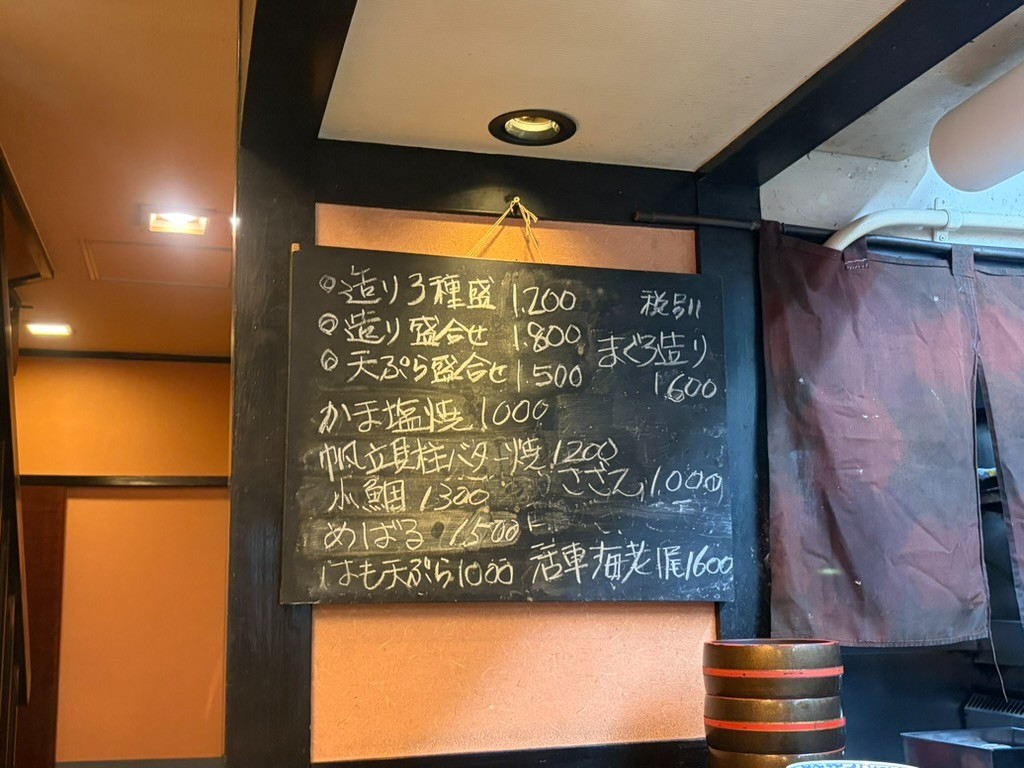 ◎造り3種盛 1.200
税引
◎造り盛合せ 1.800
まぐろ造り
1600
◎天ぷら盛合せ 1500
かま塩焼 1000
帆立貝柱バター焼 1200
小鯛 1300
さざえ 1000
めばる 1500
はも天ぷら 1000
活車海老1尾 1600